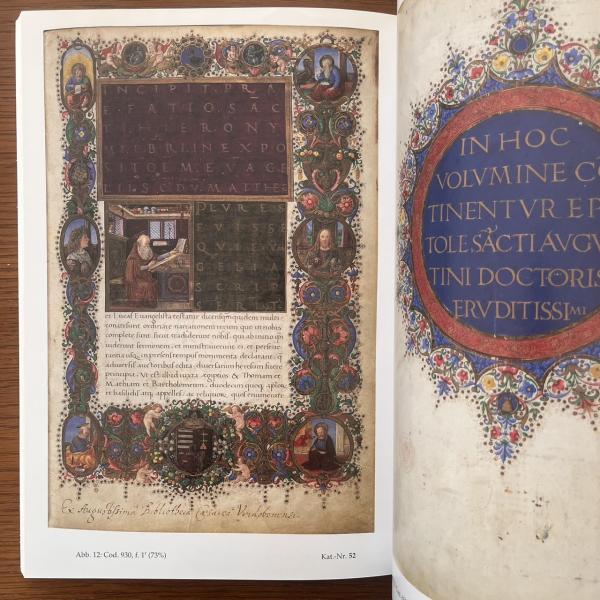 INCIPIT PRA
EFATIO SAC
TI HIERONY
MI BRI IN EXPO
EVAGE
MATTHE
PLVRES
FVISSE
QVI EVA
GELIA
SCRIP
et Lucas Evangelista testatur dicens: qm quidem multi
conati sunt ordinare narrationem rerum que in nobis
complete sunt sicut tradiderunt nobis, qui ab initio ipsi
viderunt sermonem, et ministraverunt ei, et perseve
rantia usq; in presens tempus monumenta declarant, q
a diversis auctoribus edita, diversarum heresum fuere
principia, Ut est illud iuxta egiptios & Thomam et
Mathiam et Bartholomeum, duodecim quoq; aplor
et basilidis atq; appellis, ac reliquorum quos enumerare
Ex Augustissima Bibliotheca Caesarea Vindobonensi.
Abb. 12: Cod. 930, f. 1r (73%)
Kat.-Nr. 52
IN HOC
VOLVMINE CO
TINENTVR EP
TOLE SĀCTI AVGV
TINI DOCTORIS
ERVDITISSIMI